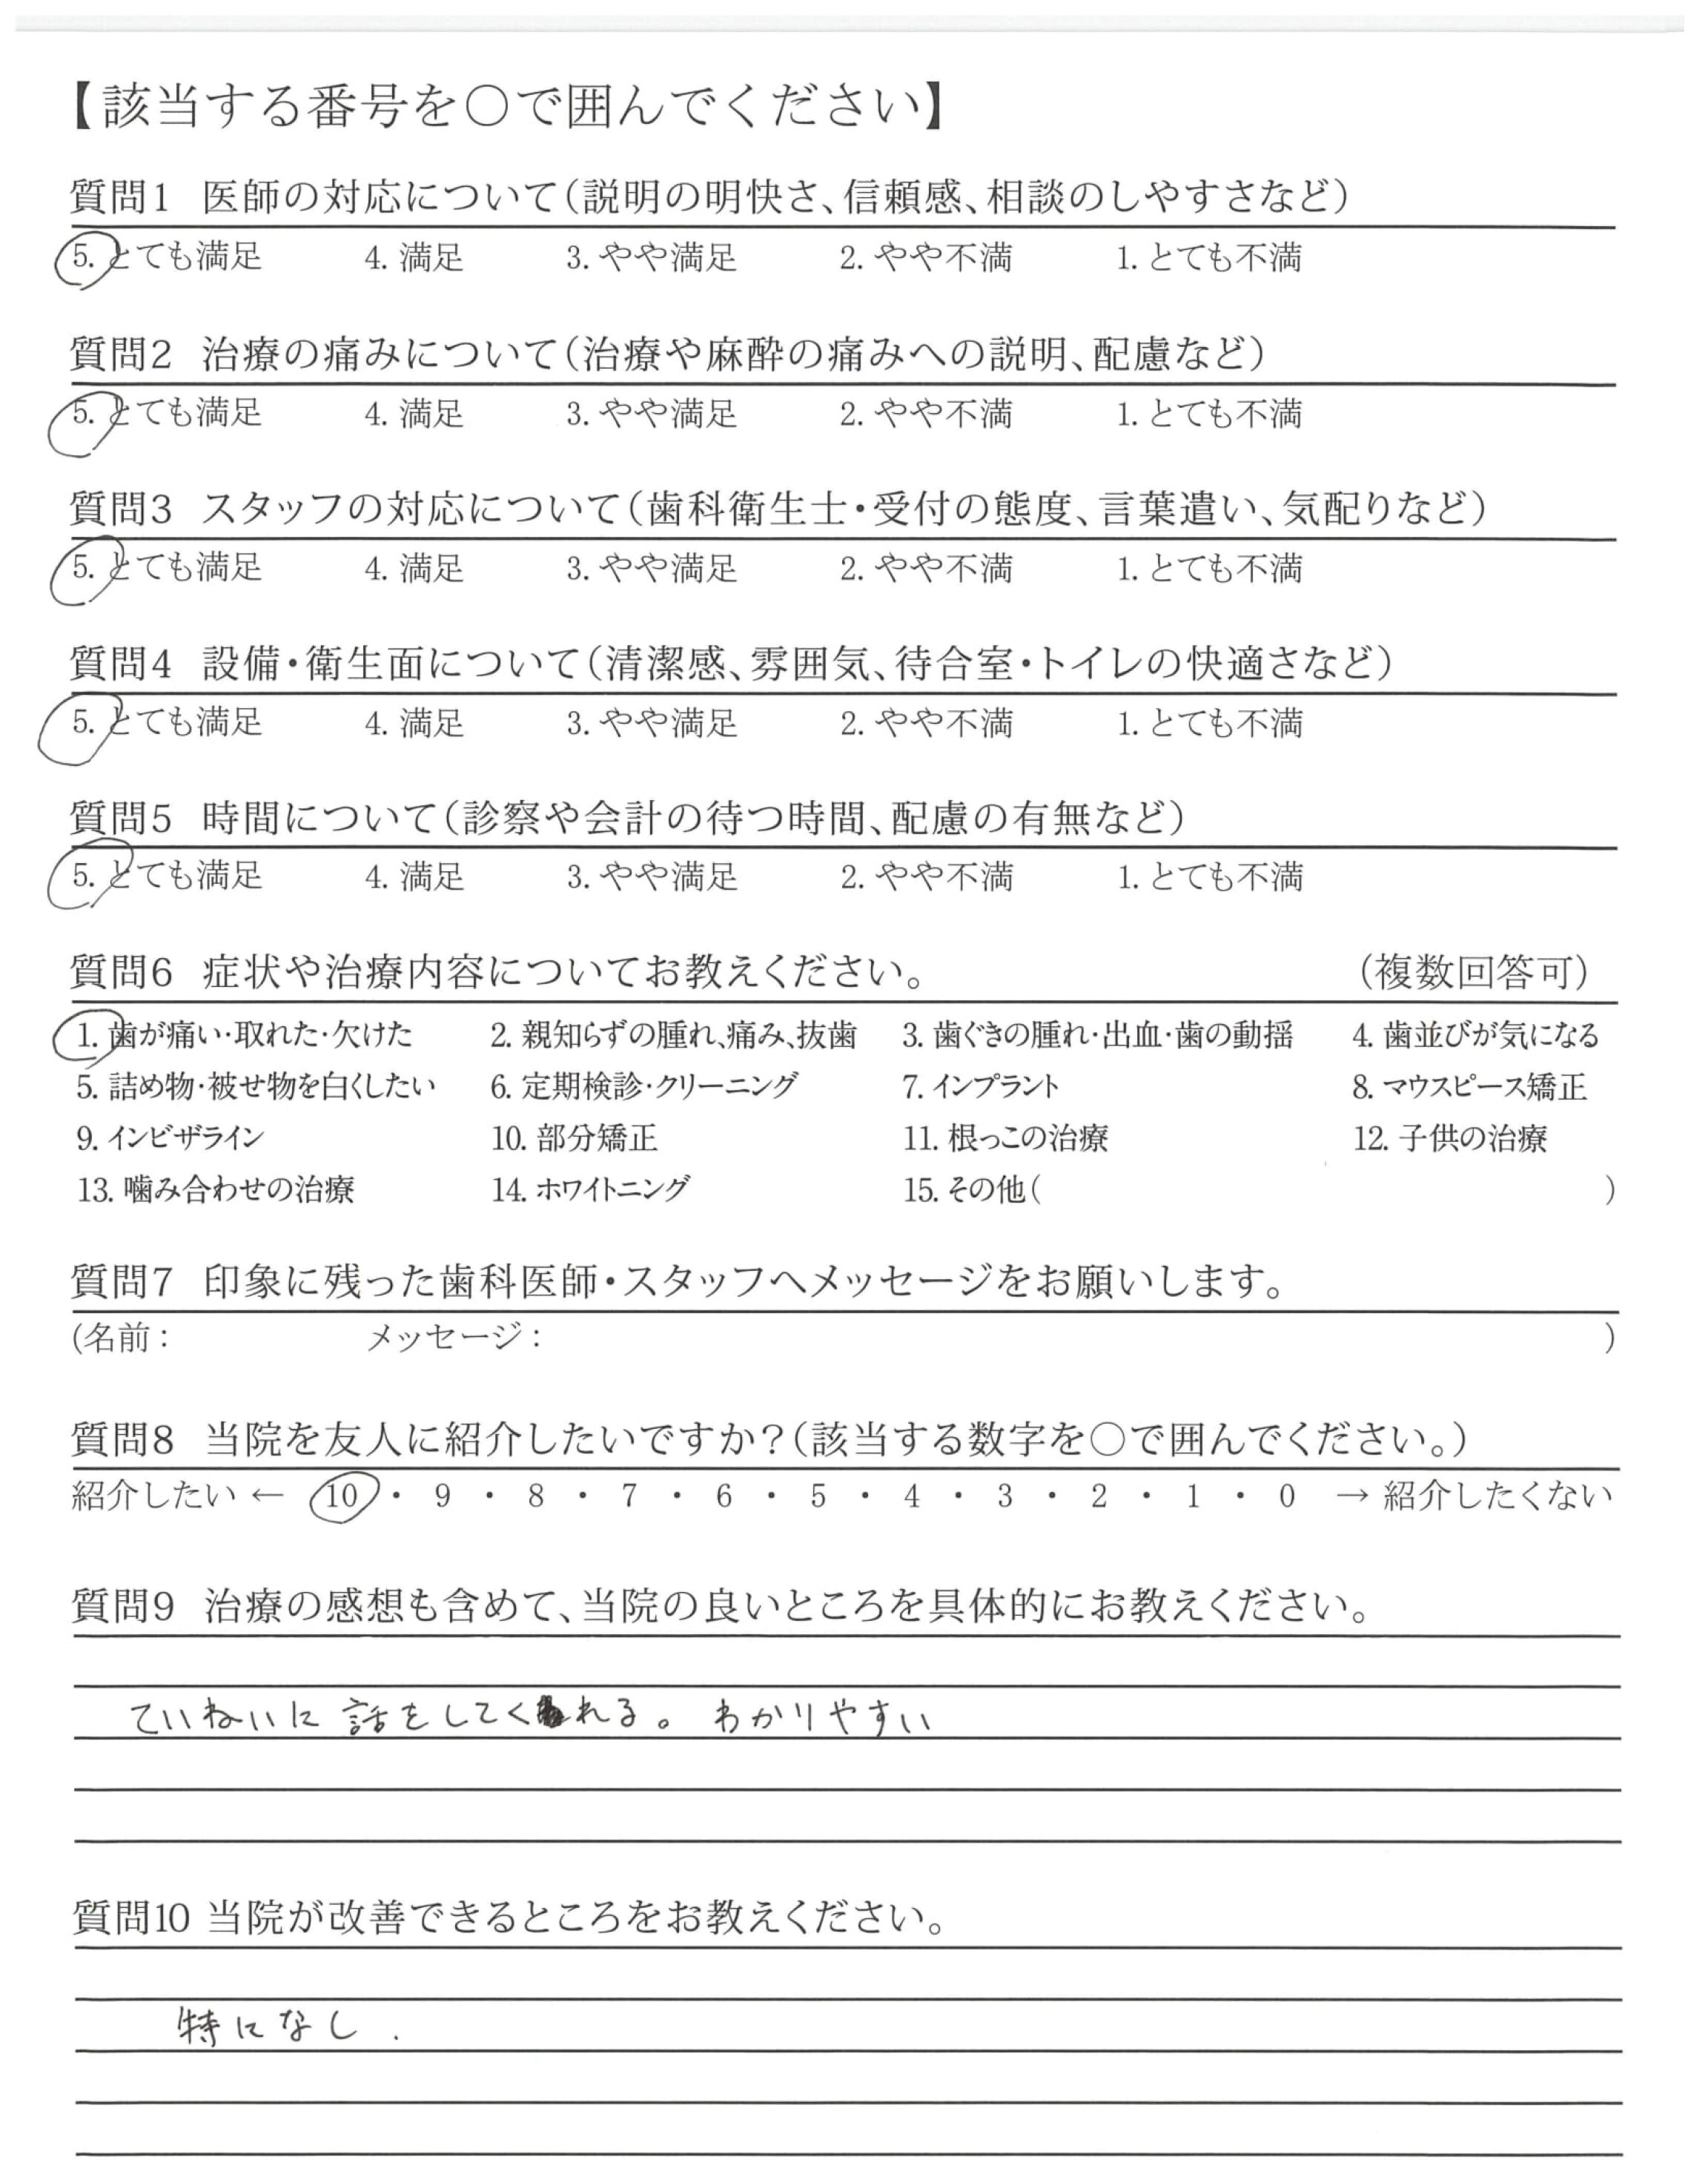 【該当する番号を○で囲んでください】
質問1 医師の対応について(説明の明快さ、信頼感、相談のしやすさなど)
5. とても満足 4. 満足 3. やや満足 2. やや不満 1. とても不満
質問2 治療の痛みについて(治療や麻酔の痛みへの説明、配慮など)
5. とても満足 4. 満足 3. やや満足 2. やや不満 1. とても不満
質問3 スタッフの対応について(歯科衛生士・受付の態度、言葉遣い、気配りなど)
5. とても満足 4. 満足 3. やや満足 2. やや不満 1. とても不満
質問4 設備・衛生面について(清潔感、雰囲気、待合室・トイレの快適さなど)
5. とても満足 4. 満足 3. やや満足 2. やや不満 1. とても不満
質問5 時間について(診察や会計の待つ時間、配慮の有無など)
5. とても満足 4. 満足 3. やや満足 2. やや不満 1. とても不満
質問6 症状や治療内容についてお教えください。 (複数回答可)
1. 歯が痛い・取れた・欠けた 2. 親知らずの腫れ、痛み、抜歯 3. 歯ぐきの腫れ・出血・歯の動揺 4. 歯並びが気になる
5. 詰め物・被せ物を白くしたい 6. 定期検診・クリーニング 7. インプラント 8. マウスピース矯正
9. インビザライン 10. 部分矯正 11. 根っこの治療 12. 子供の治療
13. 噛み合わせの治療 14. ホワイトニング 15. その他( )
質問7 印象に残った歯科医師・スタッフへメッセージをお願いします。
(名前: メッセージ: )
質問8 当院を友人に紹介したいですか?(該当する数字を○で囲んでください。)
紹介したい ← 10 ・ 9 ・ 8 ・ 7 ・ 6 ・ 5 ・ 4 ・ 3 ・ 2 ・ 1 ・ 0 → 紹介したくない
質問9 治療の感想も含めて、当院の良いところを具体的にお教えください。
ていねいに話をしてくれる。わかりやすい
質問10 当院が改善できるところをお教えください。
特になし.